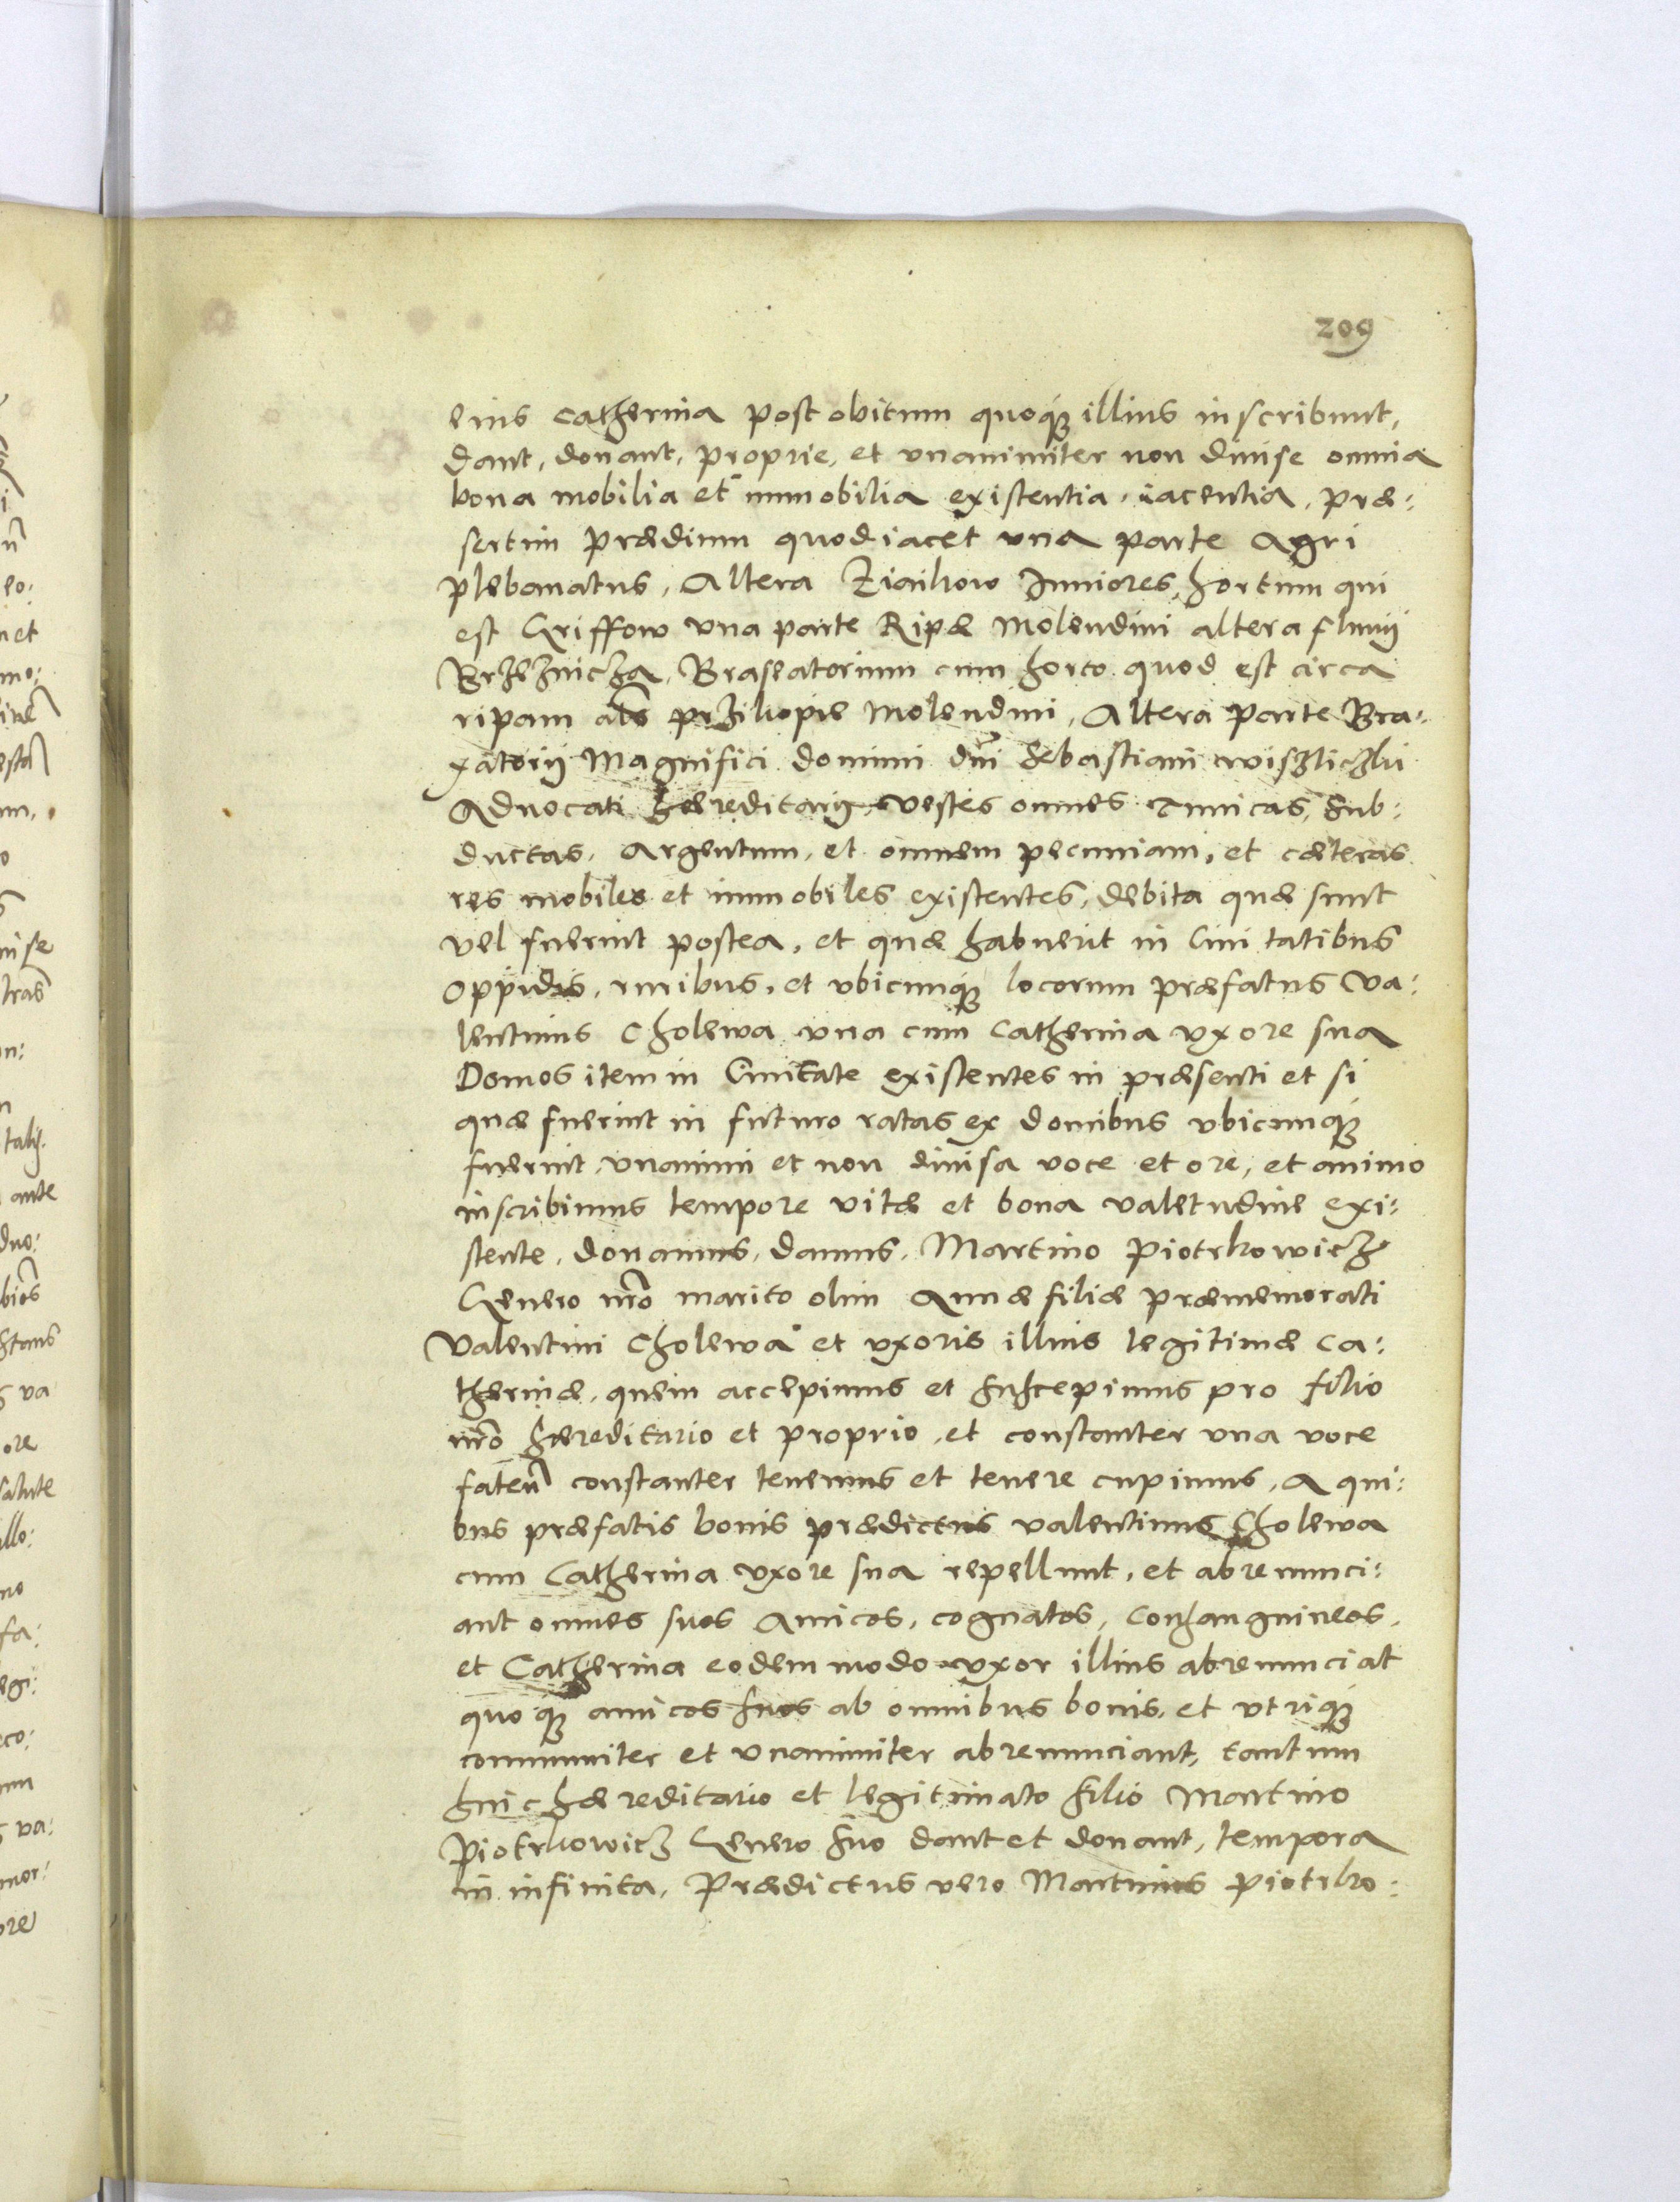 209
eius Catherina post obitum quoq́ illius inscribunt,
dant, donant, proprie, et vnanimiter non diuise omnia
bona mobilia et immobilia existentia, iacentia, præ:
sertim prædium quod iacet vna parte Agri
plebanatus, Altera Iuniores, hortum qui
est Griffow vna parte Ripæ Molendini altera fluuij
Brzeznicza, Braseatorium cum horto quod est circa
ripam als przikopie Molendini, Altera parte Bra:
xatorij Magnifici domini dni Sebastiani wiszliczki
Aduocati hæreditarij, vestes omnes Tunicas, Sub:
ductas, Argentum, et omnem pecuniam, et cæteras
res mobiles et immobiles existentes, debita quæ sunt
vel fuerint postea, et quæ habuerit in Ciui tatibus
Oppidis, ruribus, et vbicunq́ locorum præfatus Va:
lentinus Cholewa vna cum Catherina vxore sua
Domos item in Ciuitate existentes in præsenti et si
quæ fuerint in futuro ratas ex domibus vbicunq́
fuerint, vnanimi et non diuisa voce et ore, et animo
inscribimus tempore vitæ et bona valetudine exi:
stente, donamus, damus, Martino Piotrkowicz
Genero nro marito olim Annæ filiæ præmemorati
Valentini Cholewa et vxoris illius legitimæ Ca:
therinæ, quem accepimus et suscepimus pro filio
nro hæreditario et proprio, et constanter vna voce
faten constanter tenemus et tenere cupimus, A qui:
bus præfatis bonis prædictus valentinus Cholewa
cum Catherina vxore sua repellunt, et abrenunci:
ant omnes suos Amicos, cognatos, Consanguineos,
et Catherina eodem modo vxor illius abrenunciat
quoq́ amicos suos ab omnibus bonis, et vtriq́
communiter et vnanimiter abrenunciant, tantum
huic hæreditario et legitimato filio Martino
Piotrkowicz Genero suo dant et donant, tempora
in infinita, Prædictus vero Martinus Piotrko: